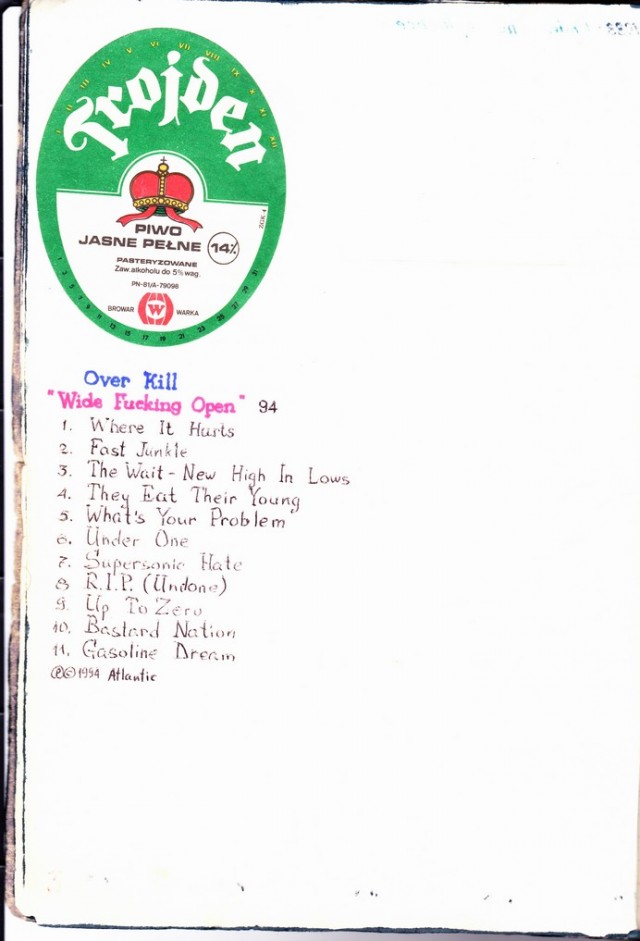 I II III IV V VI VII VIII IX X XI XII
Trojden
PIWO
JASNE PEŁNE 14%
PASTERYZOWANE
Zaw. alkoholu do 5% wag.
PN-81/A-79098
BROWAR W WARKA
1 3 5 7 9 11 13 15 17 19 21 23 25 27 29 31
Over Kill
"Wide Fucking Open" 94
1. Where It Hurts
2. Fast Junkie
3. The Wait - New High In Lows
4. They Eat Their Young
5. What's Your Problem
6. Under One
7. Supersonic Hate
8 R.I.P. (Undone)
9. Up To Zero
10. Bastard Nation
11. Gasoline Dream
℗©1994 Atlantic